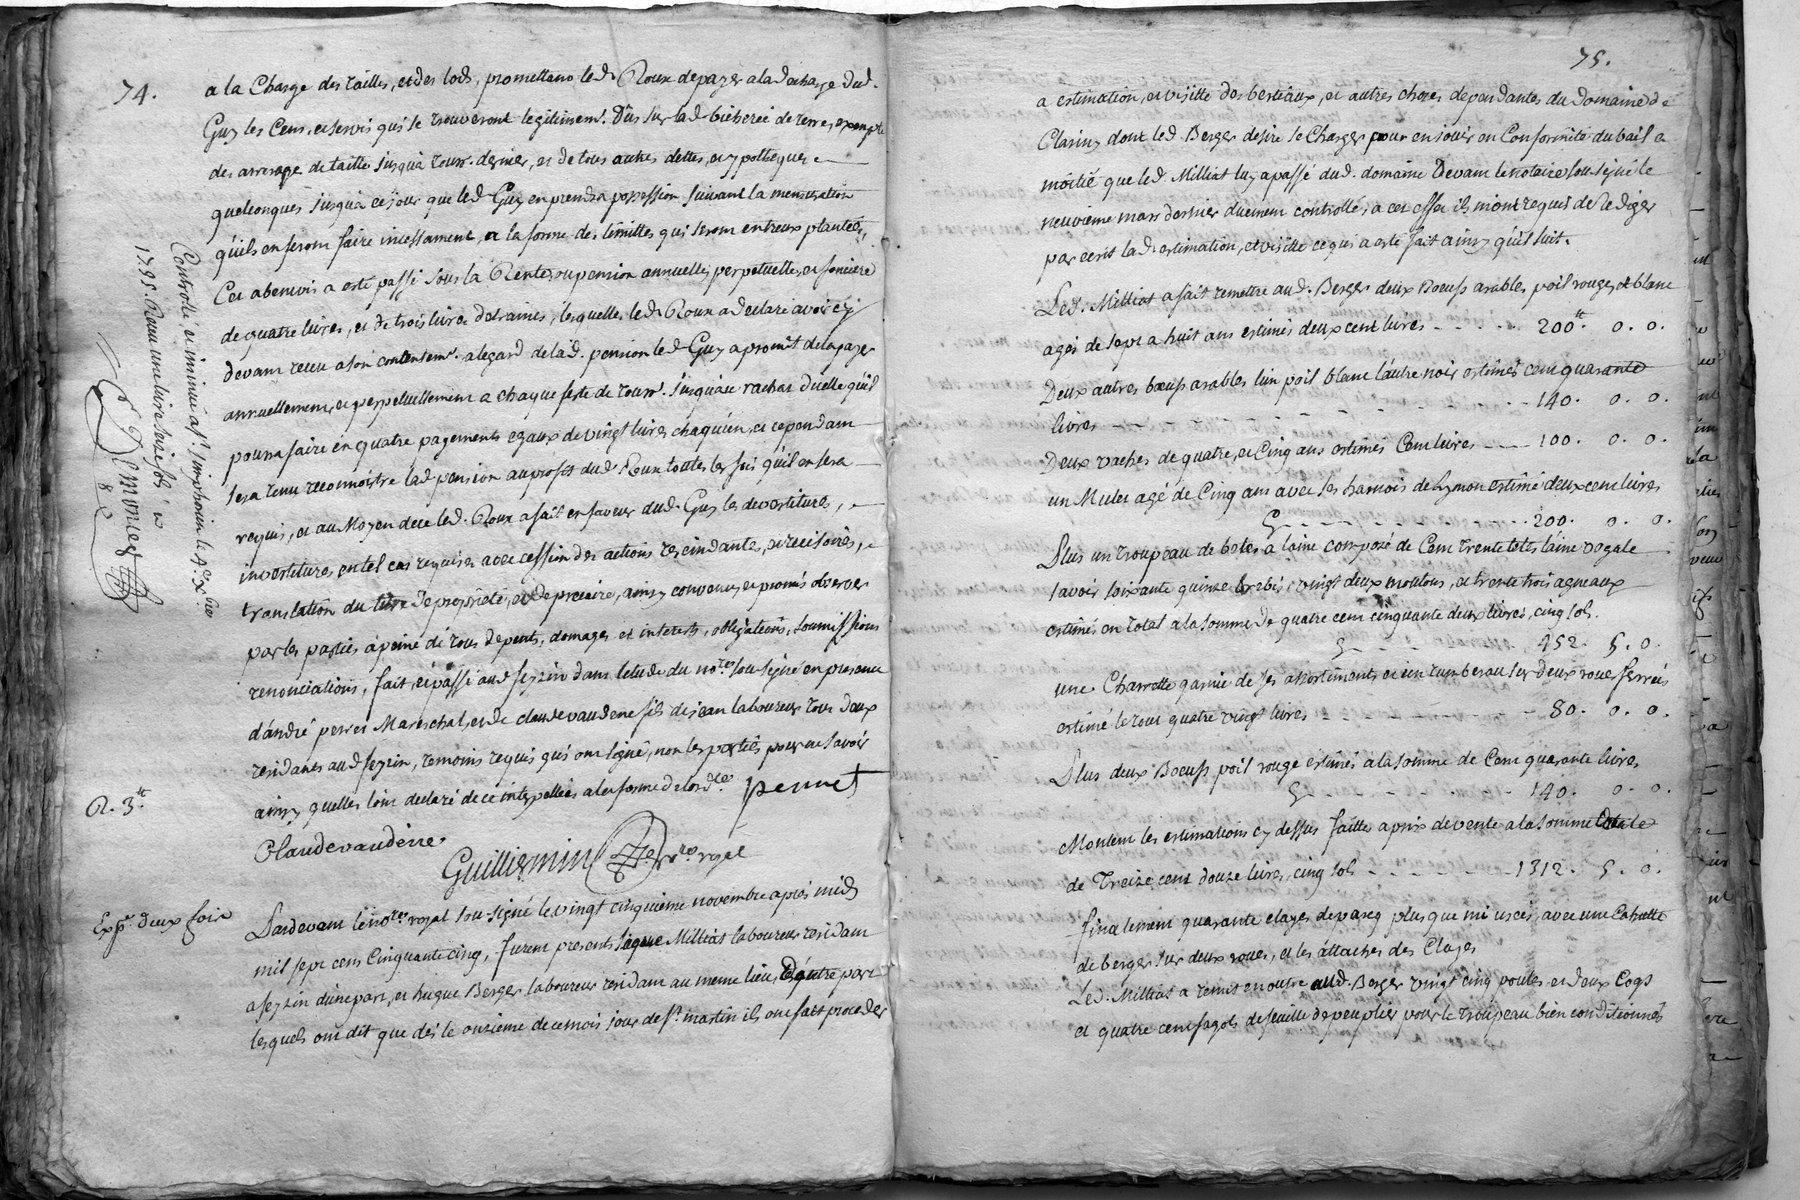 74.
a la Charge des tailles, et des lods, promettant led. Roux de payer a la decharge dud.
Guy les Cens, et servis qui se trouveront legitimemt. Dûs sur lad. bicherée de terre, exempte
des arrerage de taille jusqu'a touss. dernier, et de tous autres dettes, et ypotheque
quelconques jusqu'a ce jour que led. Guy en prendra possession suivant la mensuration
qu'ils en feront faire incessament, et a la forme des limittes qui seront entreux plantées,
Cet abenevis a esté passé sous la Rente, ou pension annuelle, perpetuelle, et fonciere
de quatre livres, et de trois livres d'etraines, lesquelles led. Roux a declaré avoir cy
devant receu a son contentemt. a legard de lad. pension led. Guy a promit de la payer
annuellement, et perpetuellement a chaque feste de touss. jusqu'au rachat d'icelle qu'il
pourra faire en quatre payements egaux de vingt livres chaqu'un, et cependant
sera tenu reconnoistre lad. pension au profit dud. Roux toutes les fois qu'il en sera
requis, et au Moyen de ce led. Roux a fait en faveur dud. Guy les devestitures,
investitures, en tel cas requises avec cession des actions rescindantes, et recisoires,
translation du titre de propriété, et de precaire, ainsy convenu, et promis observer
par les parties a peine de tous depents, domages et interests, obligations, soumissions
renonciations, fait, et passé aud. seyzin dans l'etude du nore. sou-signé en presence
d'andré perret Mareschal, et de claude vaudene fils de jean laboureur tous deux
residants aud. seyzin, temoins requis qui ont signé, non les parties pour ne savoir
ainsy quelles l'ont declaré de ce interpellées a la forme de l'ordce. perret
Claude vaudene
Guilliermin nore. royal
Controllé, et insinué a St. Simphorien le 4e Xbre
1755. Receu une livre seize sols
R. 3 tt
Exp. deux fois
Pardevant le nore. royal sou-signé le vingt cinquieme novembre aprés midy
mil sept cens Cinquante cinq, furent presents Milliat laboureur residant
a seyzin d'une part, et hugue Berger laboureur residant au meme lieu, d'autre part
lesquels ont dit que dés le onzieme de ce mois jour de St. martin ils ont fait proceder
75.
a estimation, et visitte des bestiaux, et autres choses dependantes du domaine de
Clariny dont led. Berger desire se Charger pour en jouir en Conformité du bail a
moitié que led. Milliat luy a passé dud. domaine Devant le notaire sou-signé le
neuvieme mars dernier duement controllé, a cet effet ils m'ont requis de Rediger
par ecrit lad. estimation, et visitte ce qui a esté fait ainsy qu'il suit.
Led. Milliat a fait remettre aud. Berger deux Boeufs arables, poil rouge, et blanc
agés de sept a huit ans estimés deux cent livres - - - - - 200 tt. 0. 0.
Deux autres boeufs arables l'un poil blanc l'autre noir estimés cent quarante
livres - - - - - 140. 0. 0.
Deux vaches de quatre, et Cinq ans estimés Cent livres - - - 100. 0. 0.
un Mulet agé de Cinq ans avec ses harnois de lymon estimé deux cent livres
Cy - - - - - 200. 0. 0.
Plus un troupeau de betes a laine composé de Cent trente tetes laine
savoir soixante quinze brebis, vingt deux moutons, et trente trois agneaux
estimés en total a la somme de quatre cent cinquante deux livres, cinq sols.
Cy - - - - - 452. 5. 0.
une Charrette garnie de ses assortiments et un tumbereau sur deux roues ferrées
estimé le tout quatre vingt livres - - - - - 80. 0. 0.
Plus deux Boeufs poil rouge estimés a la somme de Cent quarante livres
Cy - - - - - 140. 0. 0.
Montent les estimations cy dessus faittes a prix de vente a la somme totale
de Treize cent douze livres, cinq sols - - - - - 1312. 5. 0.
finalement quarante clayes de parcq plus que mi usées, avec une Cabutte
de berger sur deux roues, et les attaches des Clayes
Led. Milliat a remis en outre aud. Berger vingt cinq poules et deux Coqs
et quatre cent fagots de feuille de peuplier pour le troupeau bien conditionnés